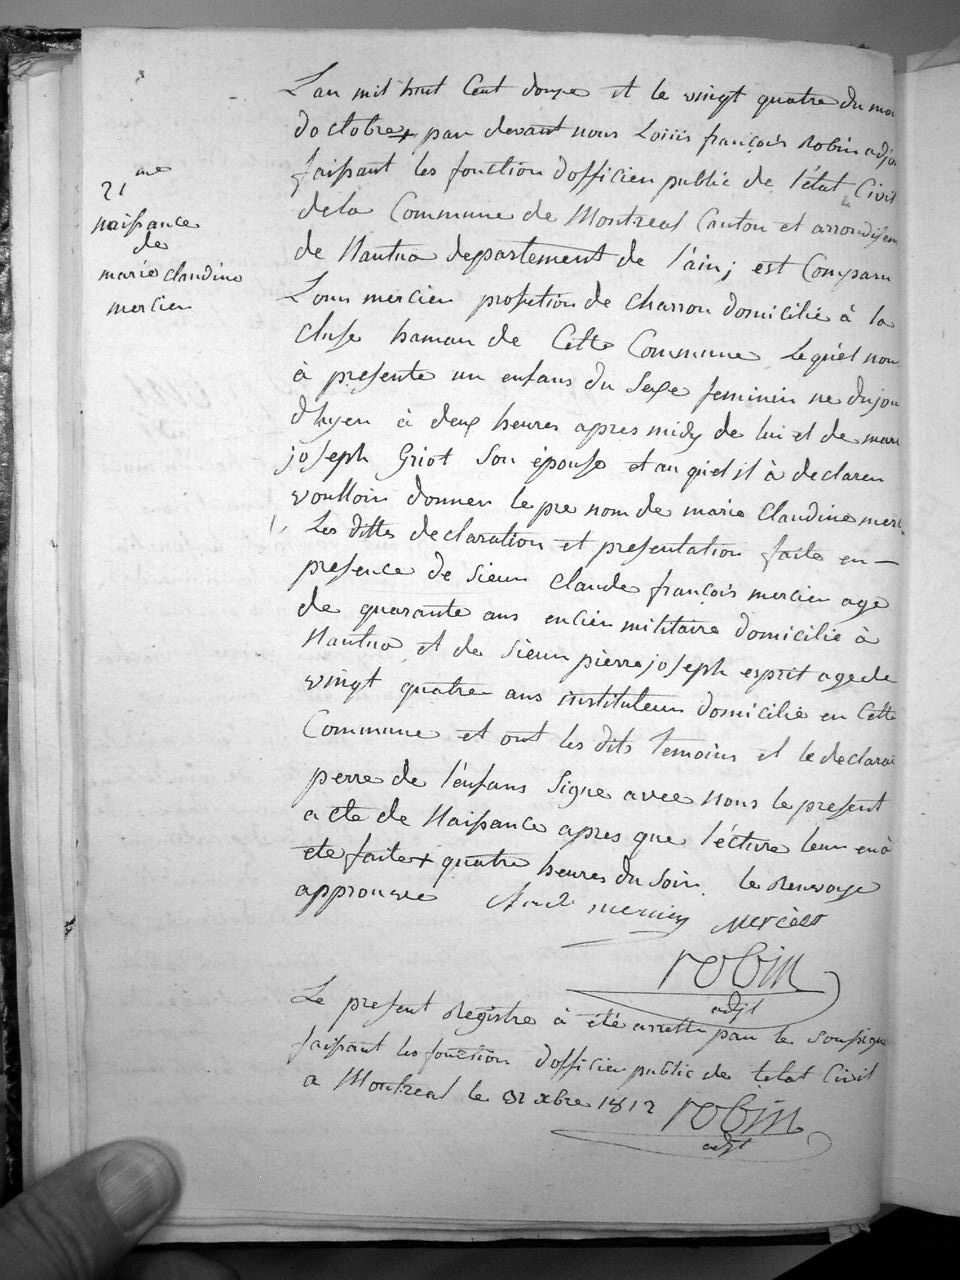 21me
naissance
de
marie claudine
mercier
L'an mil huit Cent douze et le vingt quatre du moi
doctobre + par devant nous Loüis françois Robin adjo
faissant les fonction dofficier public de l'état Civil
dela Commune de Montreal Canton et arrondissem
de Nantua departement de l'ain; est Comparu
Louis mercier profetion de charron domicilié à la
cluse hamau de Cette Commune Lequel nou
à presente un enfans du Sexe feminin ne dujou
d'hyer à deux heures apres midy de lui et de mari
joseph Griot Son épouse et au quel il à declarer
voulloir donner le pre nom de marie Claudine merc
Les dittes declaration et presentation faite en —
presence de Sieur Claude françois mercier age
de quarante ans encien militaire domicilie à
Nantua et de Sieur pierre joseph esprit age de
vingt quatre ans instituteur domicilie en Cette
Commune et ont les dits temoins et le declarai
perre de l'énfans Signe avec nous le present
acte de Naissance apres que l'écture leur en à
ete faite + quatre heures du Soir. le renvoye
approuve mercier Mercier
robin
adjt
Le present Registre à été arretté par le soussigne
faissant les fonction d'officier public de l'état Civil
a Montreal le 31 xbre 1812 robin
adjt